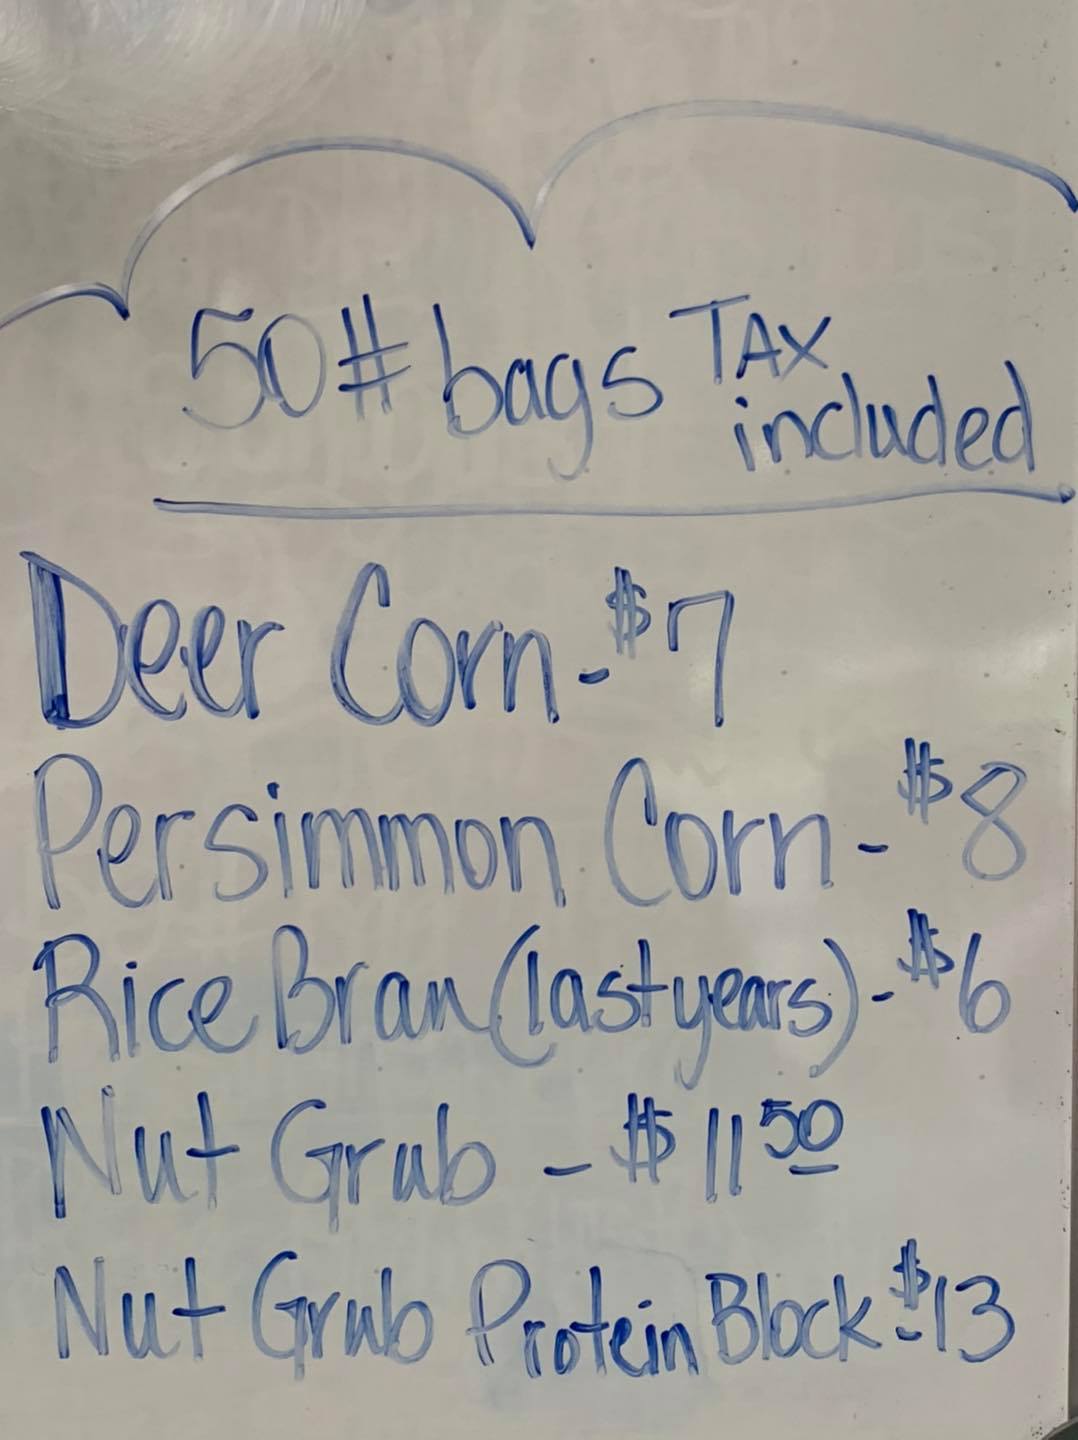 50# bags TAX included
Deer Corn - $7
Persimmon Corn - $8
Rice Bran (last years) - $6
Nut Grub - $11 50
Nut Grub Protein Block - $13